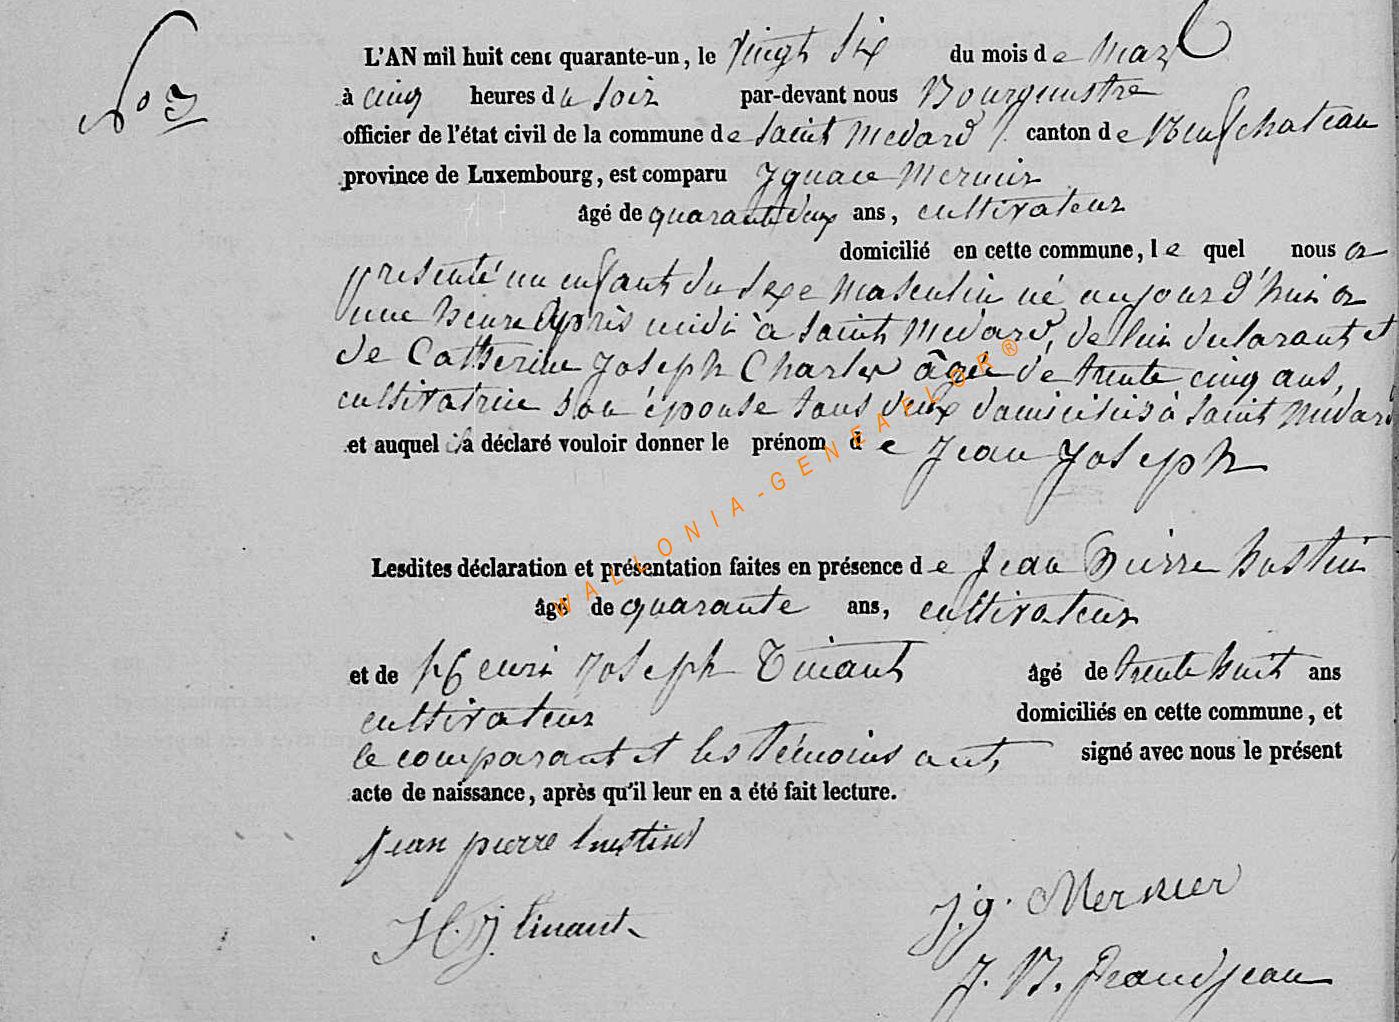 L'AN mil huit cent quarante-un, le vingt six du mois de mars
N° 3
à cinq heures du soir par-devant nous Bourguestre
officier de l'état civil de la commune de saint medard canton de Neufchateau
province de Luxembourg, est comparu Ignace Mernier
âgé de quarante deux ans, cultivateur
domicilié en cette commune, le quel nous a
presenté un enfant du sexe masculin né aujourd'hui a
une heure après midi à saint medard, de lui declarant et
de Catherine Joseph Charlier âgée de trente cinq ans,
cultivatrice son épouse tous deux domiciliés à saint médard
et auquel il a déclaré vouloir donner le prénom de Jean Joseph
WALLONIA-GENEAFLOR®
Lesdites déclaration et présentation faites en présence de Jean Pierre hustin
âgé de quarante ans, cultivateur
et de Henri Joseph Tinant âgé de trente huit ans
cultivateur domiciliés en cette commune, et
le comparant et les témoins ont, signé avec nous le présent
acte de naissance, après qu'il leur en a été fait lecture.
jean pierre hustin
J. g. Mernier
H. J. tinant
J. B. Grandjean